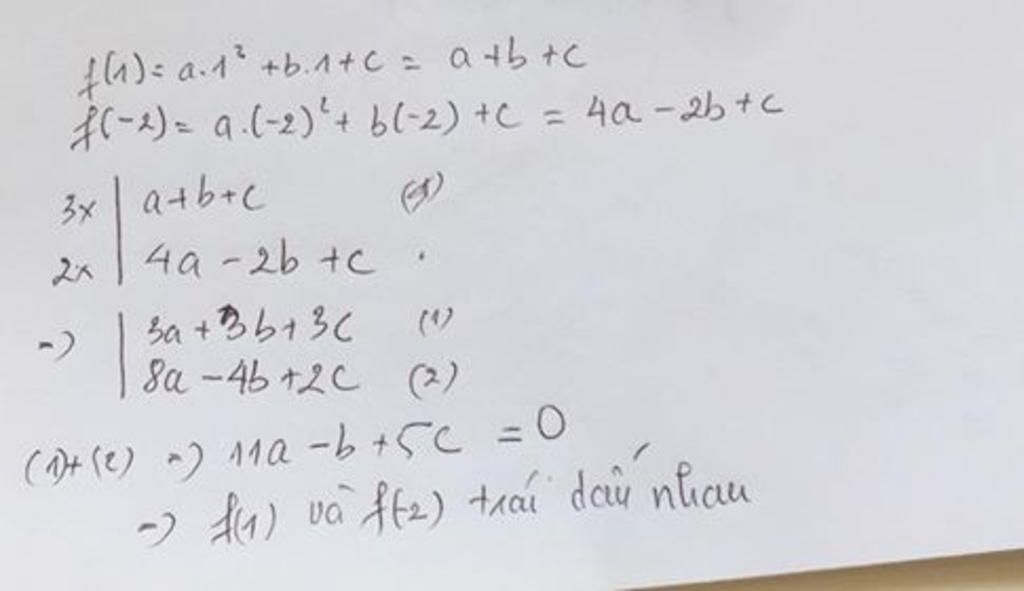 f(1) = a.1² + b.1 + c = a + b + c
f(-2) = a.(-2)² + b(-2) + c = 4a - 2b + c
3x | a + b + c
2x | 4a - 2b + c .
=> | 3a + 3b + 3c (1)
| 8a - 4b + 2c (2)
(1) + (2) => 11a - b + 5c = 0
=> f(1) và f(-2) trái dấu nhau